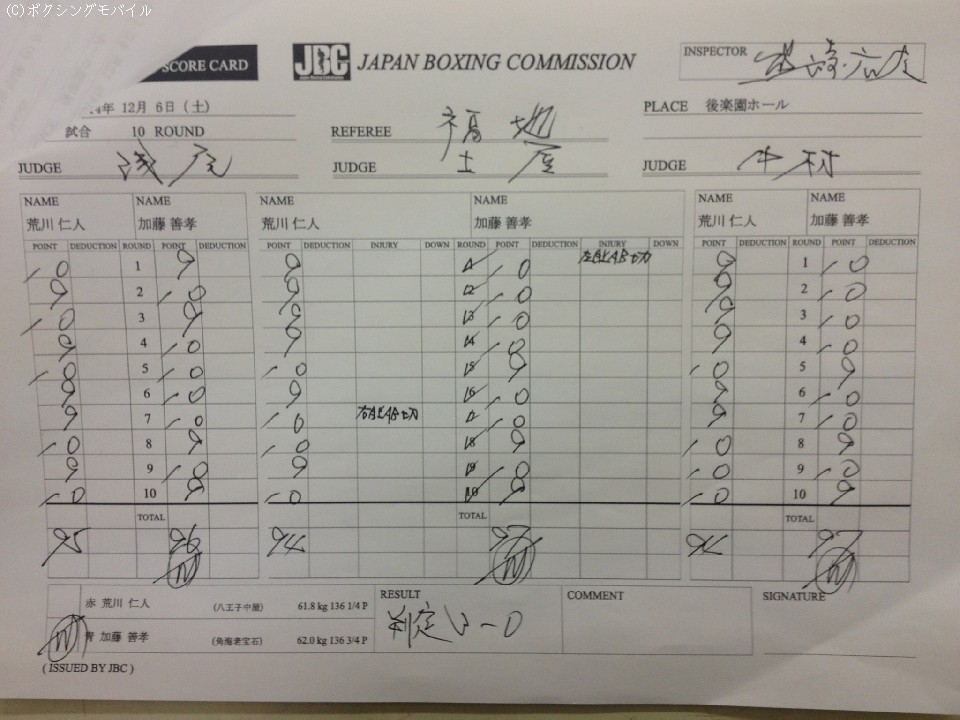 (C)ボクシングモバイル
SCORE CARD JBC JAPAN BOXING COMMISSION INSPECTOR
4年 12月 6日 (土) PLACE 後楽園ホール
試合 10 ROUND REFEREE 福地
JUDGE 浅尾 JUDGE 土屋 JUDGE
NAME NAME NAME NAME NAME NAME
荒川 仁人 加藤 善孝 荒川 仁人 加藤 善孝 荒川 仁人 加藤 善孝
POINT DEDUCTION ROUND POINT DEDUCTION POINT DEDUCTION INJURY DOWN ROUND POINT DEDUCTION INJURY DOWN POINT DEDUCTION ROUND POINT DEDUCTION
10 1 9 9 1 10 9 1 10
9 2 10 9 2 10 9 2 10
10 3 9 9 3 10 9 3 10
9 4 10 9 4 10 9 4 10
10 5 10 10 5 9 10 5 9
9 6 10 9 6 10 9 6 10
9 7 10 10 7 9 7 10
10 8 9 10 8 9 10 8 9
9 9 10 9 9 10 10 9 10
10 10 9 10 10 9 10 10 9
TOTAL TOTAL TOTAL
95 96 94 97 97
W W W
赤 荒川 仁人 (八王子中屋) 61.8 kg 136 1/4 P RESULT COMMENT SIGNATURE
W 青 加藤 善孝 (角海老宝石) 62.0 kg 136 3/4 P 判定 3-0
( ISSUED BY JBC )